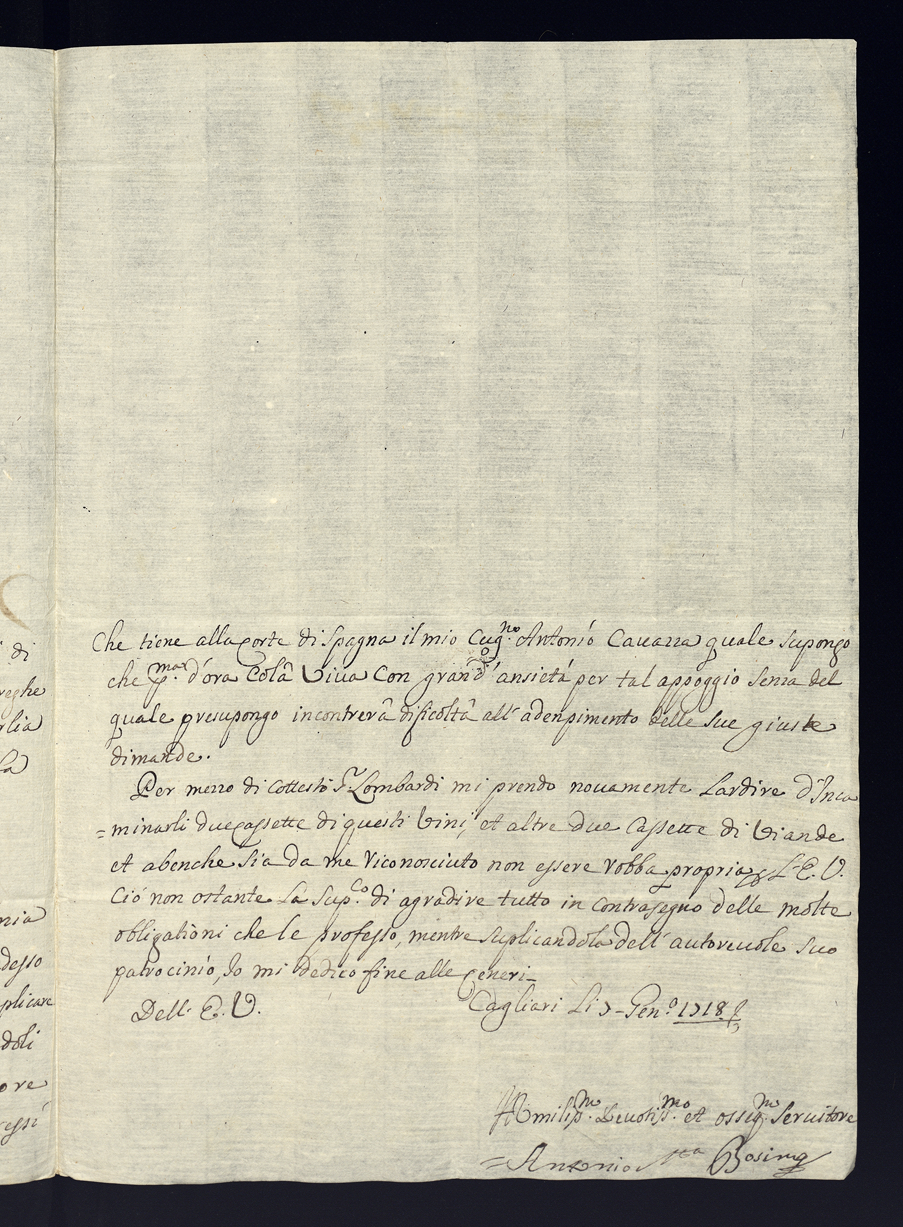 di
Che tiene alla Corte di Spagna il mio Cug.no Antonio Cauazza quale supongo
reghe
che p.ma d'ora Colà Viua Con grand' ansietà per tal appoggio Senza del
rlia
quale presupongo incontrerà dificoltà all' adenpimento delle Sue giuste
la
dimande.
Per mezzo di Cottesto S.r Lombardi mi prendo nouamente Lardire d'Inca
=minarli due Cassette di questi Vini, et altre due Cassette di Viande
et abenche Sia da me riconosciuto non essere robba propria p L'E. V.
Ciò non ostante La Sup.co di agradire tutto in Contrasegno delle molte
nia
obligationi che le professo, mentre Suplicandola dell' autoreuole Suo
desso
patrocinio, Io mi dedico fine alle Ceneri_
plicare
Dell' E. V.
Cagliari Li 7 Gen.o 1718
doli
ore
essi
Humilis.mo Deuotis.mo et osseq.mo Seruitore
=Antonio M.a